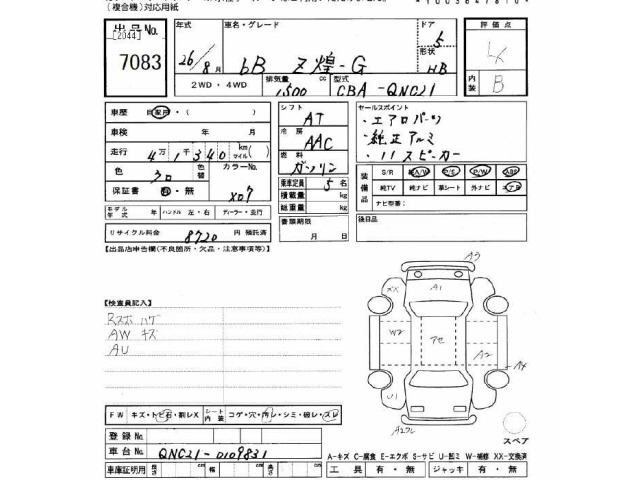 (複合機)対応用紙
出品No. 年式 車名・グレード ドア 評価点
[2044] 5
7083 26/8月 bB Z煌-G 形状 HB 4
2WD・4WD 排気量 cc 型式 内装 B
1500 CBA-QNC21
車歴 自家用・( ) シフト AT セールスポイント
車検 年 月 冷房 AAC ・エアロパーツ
走行 4万1千340 km マイル 燃料 ガソリン ・純正アルミ
色 クロ 色替 カラーNo. X07 乗車定員 5名 ・11スピーカー
保証書 有・無 積載量 kg
総重量 kg
装備品 S/R 純A/W P/S P/W ABS
純TV 純ナビ 革シート 外ナビ エアB
ナビ型番:
モデル年式 年 ハンドル 左・右 ディーラー・並行 書類期限 月 日 後日品
リサイクル料金 8720 円 預託済
【出品店申告欄(不良箇所・欠品・注意事項等)】
【検査員記入】
Rスポ ハゲ
AW キズ
AU
A3
XX A1
W2 アセ A2
A4
U1
A2ワレ
スペア
FW キズ・トビ石・割レX シート内装 コゲ・穴・切レ・シミ・破レ・スレ
登録No.
車台No. QNC21-0109831
A-キズ C-腐食 E-エクボ S-サビ U-凹ミ W-補修 XX-交換済
車庫証明用 長さ cm 幅 cm 高さ cm 工具 有・無 ジャッキ 有・無